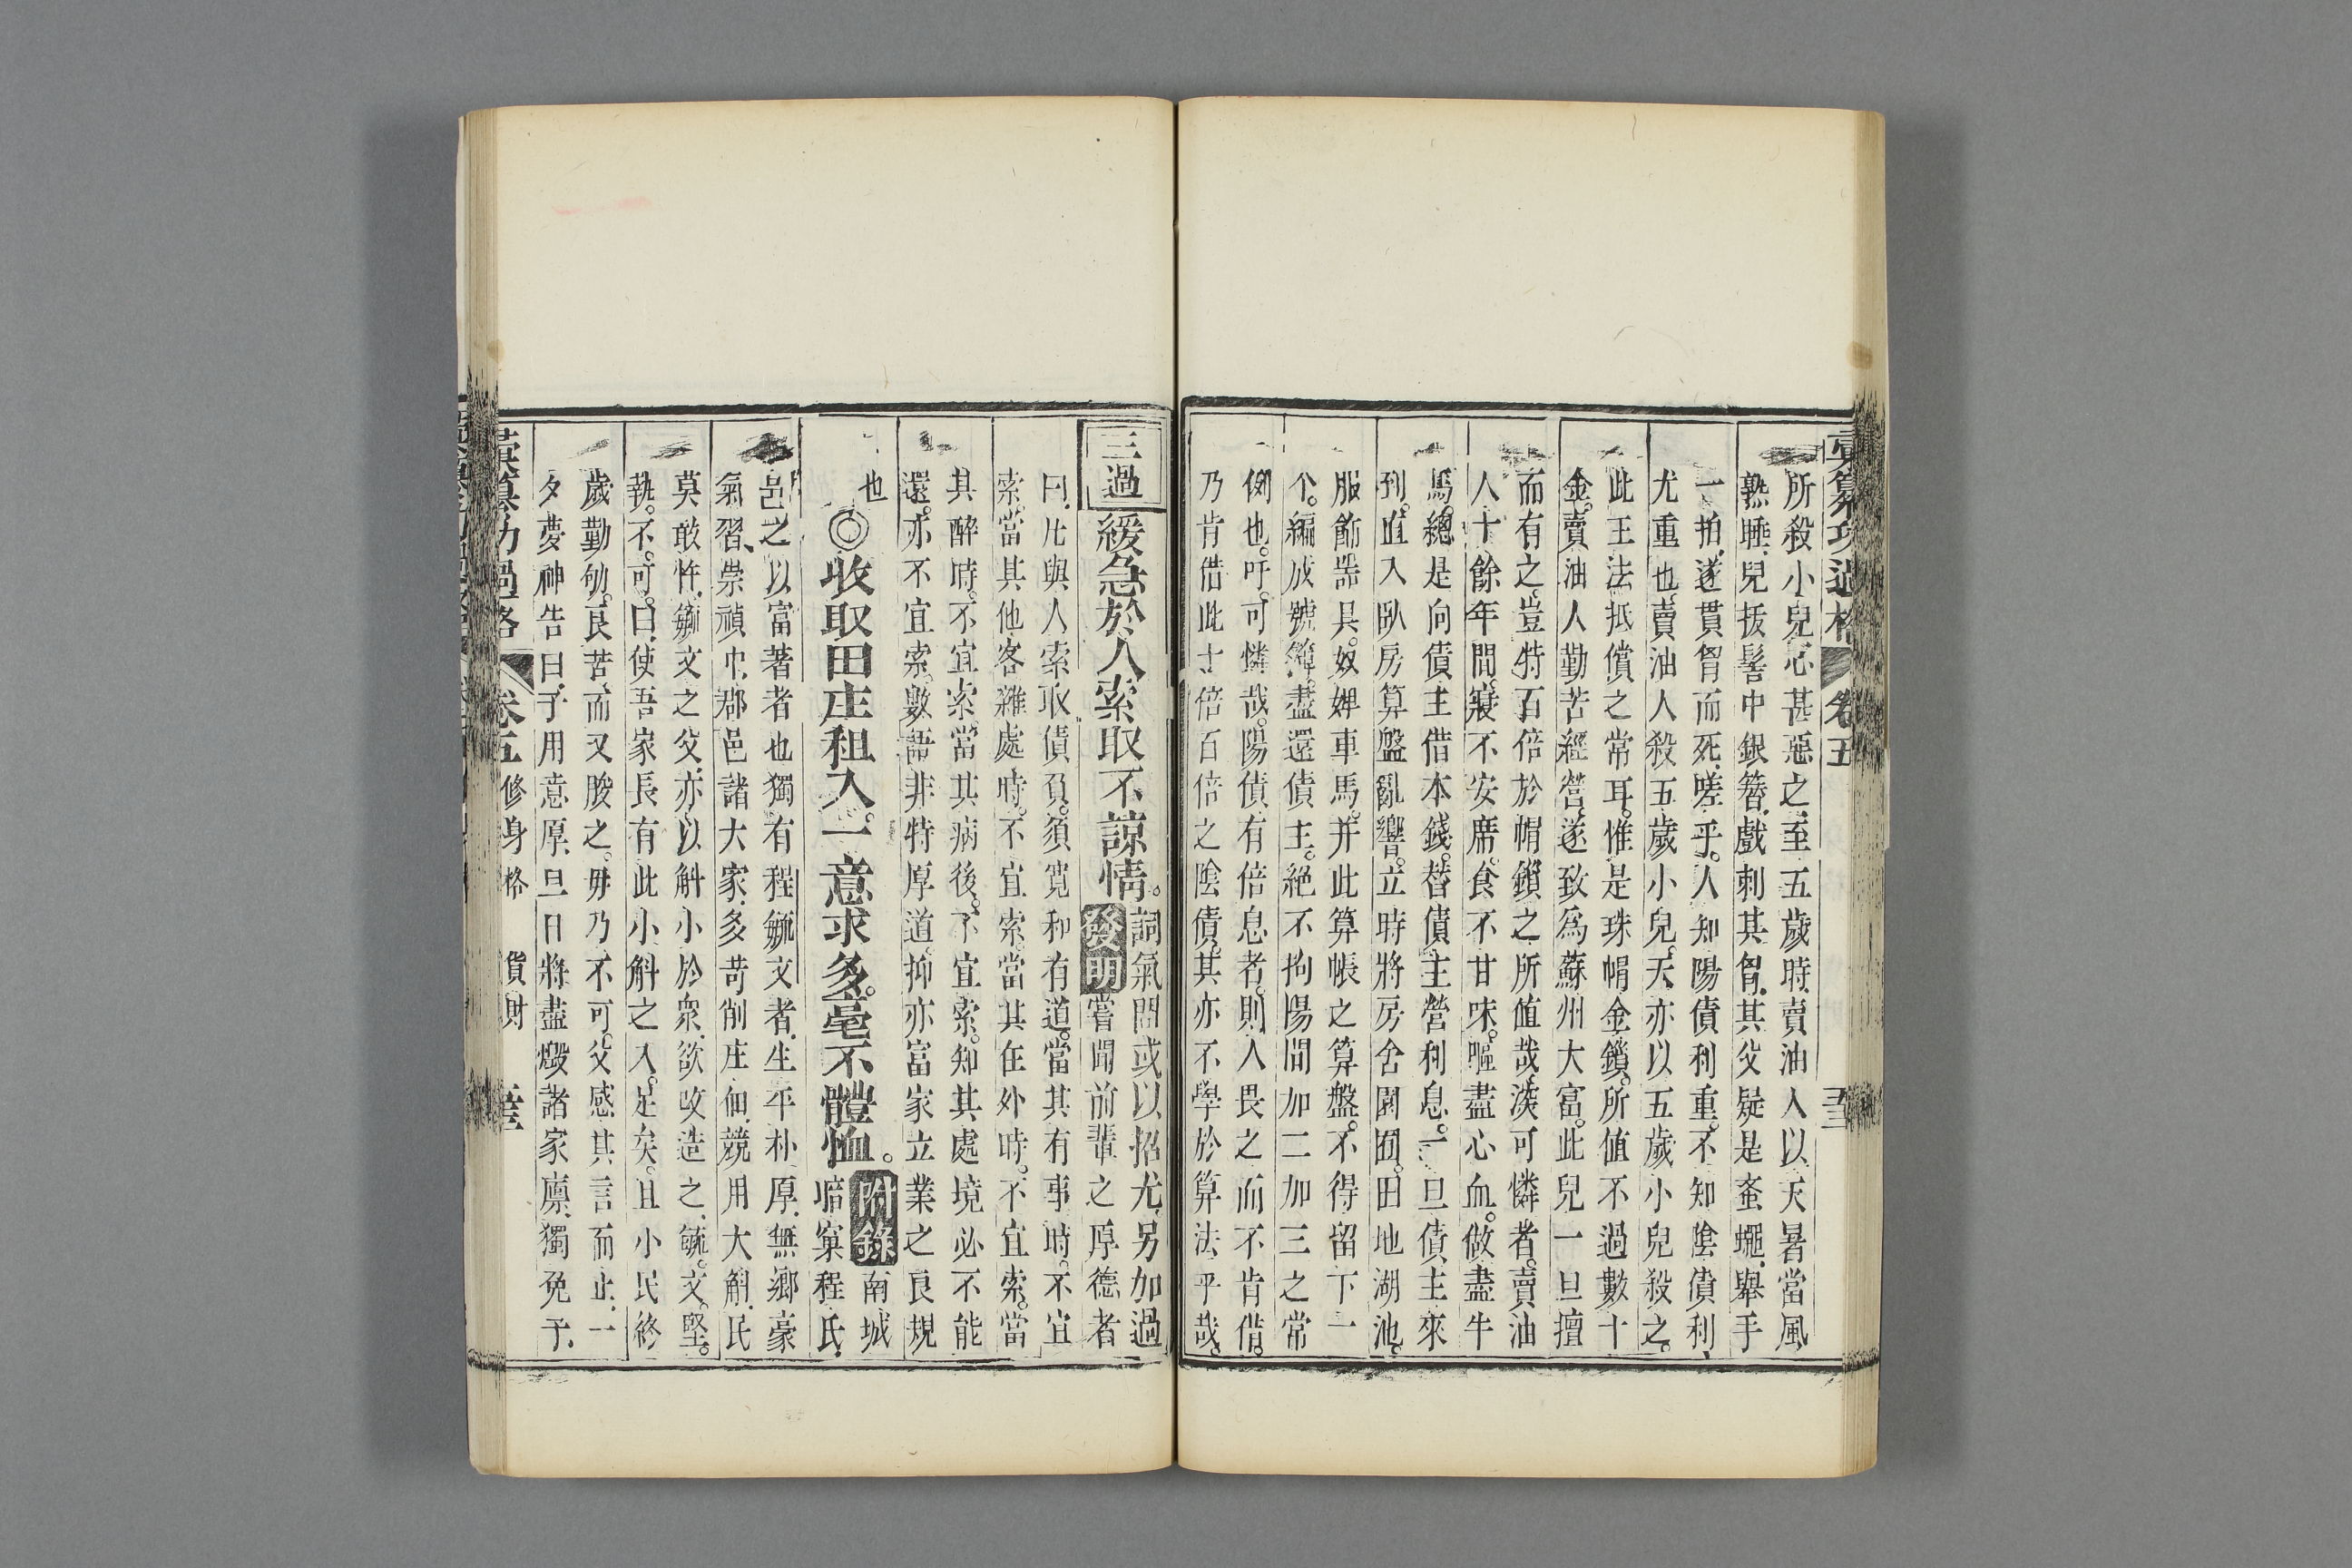 彙纂功過格　卷五
所殺小兒心甚惡之至五歲時賣油人以天暑當風
熟睡兒拔髻中銀簪戲刺其胷其父疑是蚤蠅舉手
一拍遂貫胷而死嗟乎人知陽債利重不知陰債利
尤重也賣油人殺五歲小兒天亦以五歲小兒殺之
此王法抵償之常耳惟是珠帽金鎖所值不過數十
金賣油人勤苦經營遂致爲蘇州大富此兒一旦擅
而有之豈特百倍於帽鎖之所值哉淡可憐者賣油
人十餘年間寢不安席食不甘味嘔盡心血做盡牛
馬總是向債主借本錢替債主營利息一旦債主來
到直入臥房算盤亂響立時將房舍園囿田地湖池
服飾器具奴婢車馬并此算帳之算盤不得留下一
个編成號簿盡還債主絕不拘陽間加二加三之常
例也吁可憐哉陽債有倍息者則人畏之而不肯借
乃肯借此十倍百倍之陰債其亦不學於算法乎哉
三過　緩急於人索取不諒情。詞氣間或以招尤另加過
發明　嘗聞前輩之厚德者
曰凡與人索取債負須寬和有道當其有事時不宜
索當其他客雜處時不宜索當其在外時不宜索當
其醉時不宜索當其病後不宜索知其處境必不能
還亦不宜索數語非特厚道抑亦富家立業之良規
也
◎收取田庄租入一意求多毫不體恤。附錄　南城
喑窠程氏
邑之以富著者也獨有程毓文者生平朴厚無鄉豪
氣習崇禎中郡邑諸大家多苛削庄佃競用大斛民
莫敢忤毓文之父亦以斛小於衆欲改造之毓文堅
執不可曰使吾家長有此小斛之入足矣且小民終
歲勤劬良苦而又朘之毋乃不可父感其言而止一
夕夢神告曰子用意厚旦日將盡燬諸家廪獨免于
彙纂功過格　卷五　修身格　貨財